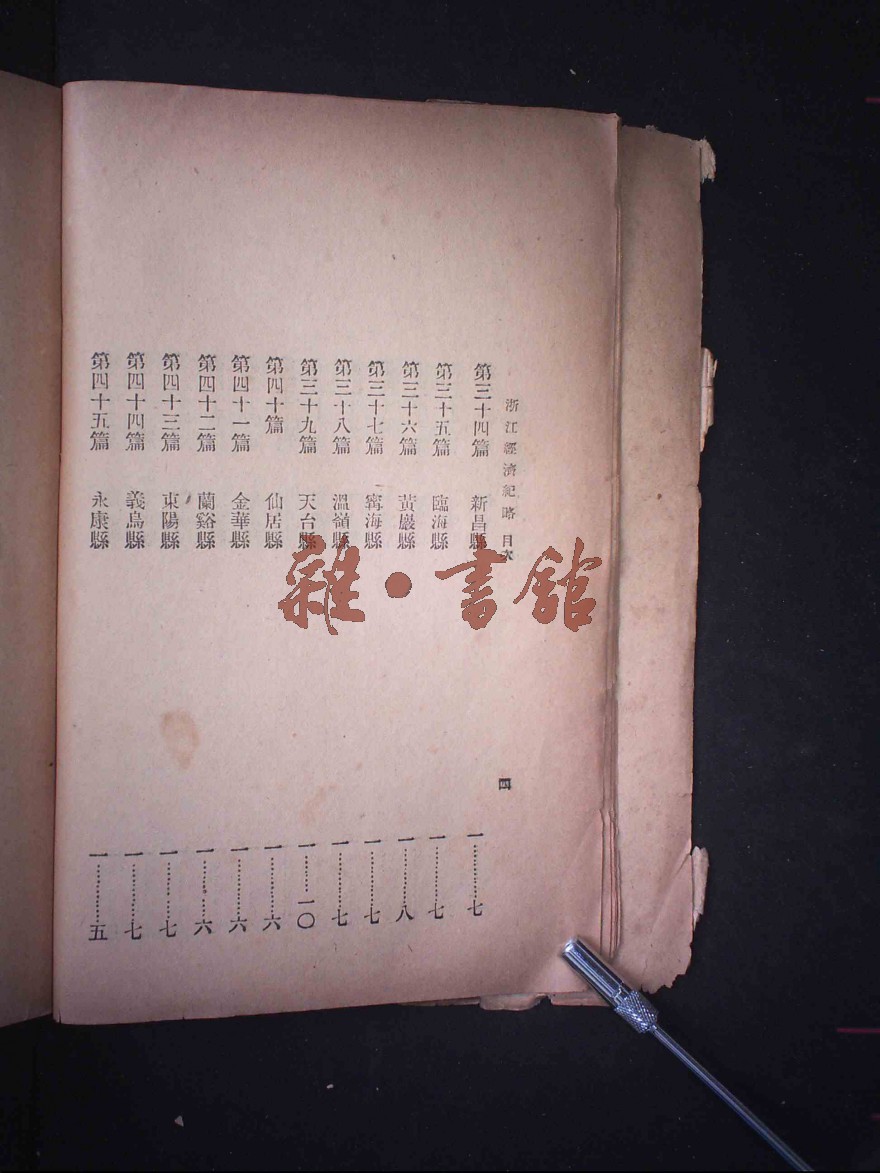 浙江經濟紀略 目次
四
第三十四篇 新昌縣 一…………七
第三十五篇 臨海縣 一…………七
第三十六篇 黃巖縣 一…………八
第三十七篇 寗海縣 一…………七
第三十八篇 溫嶺縣 一…………七
第三十九篇 天台縣 一………一〇
第四十篇 仙居縣 一…………六
第四十一篇 金華縣 一…………六
第四十二篇 蘭谿縣 一…………六
第四十三篇 東陽縣 一…………七
第四十四篇 義烏縣 一…………七
第四十五篇 永康縣 一…………五
雜·書館